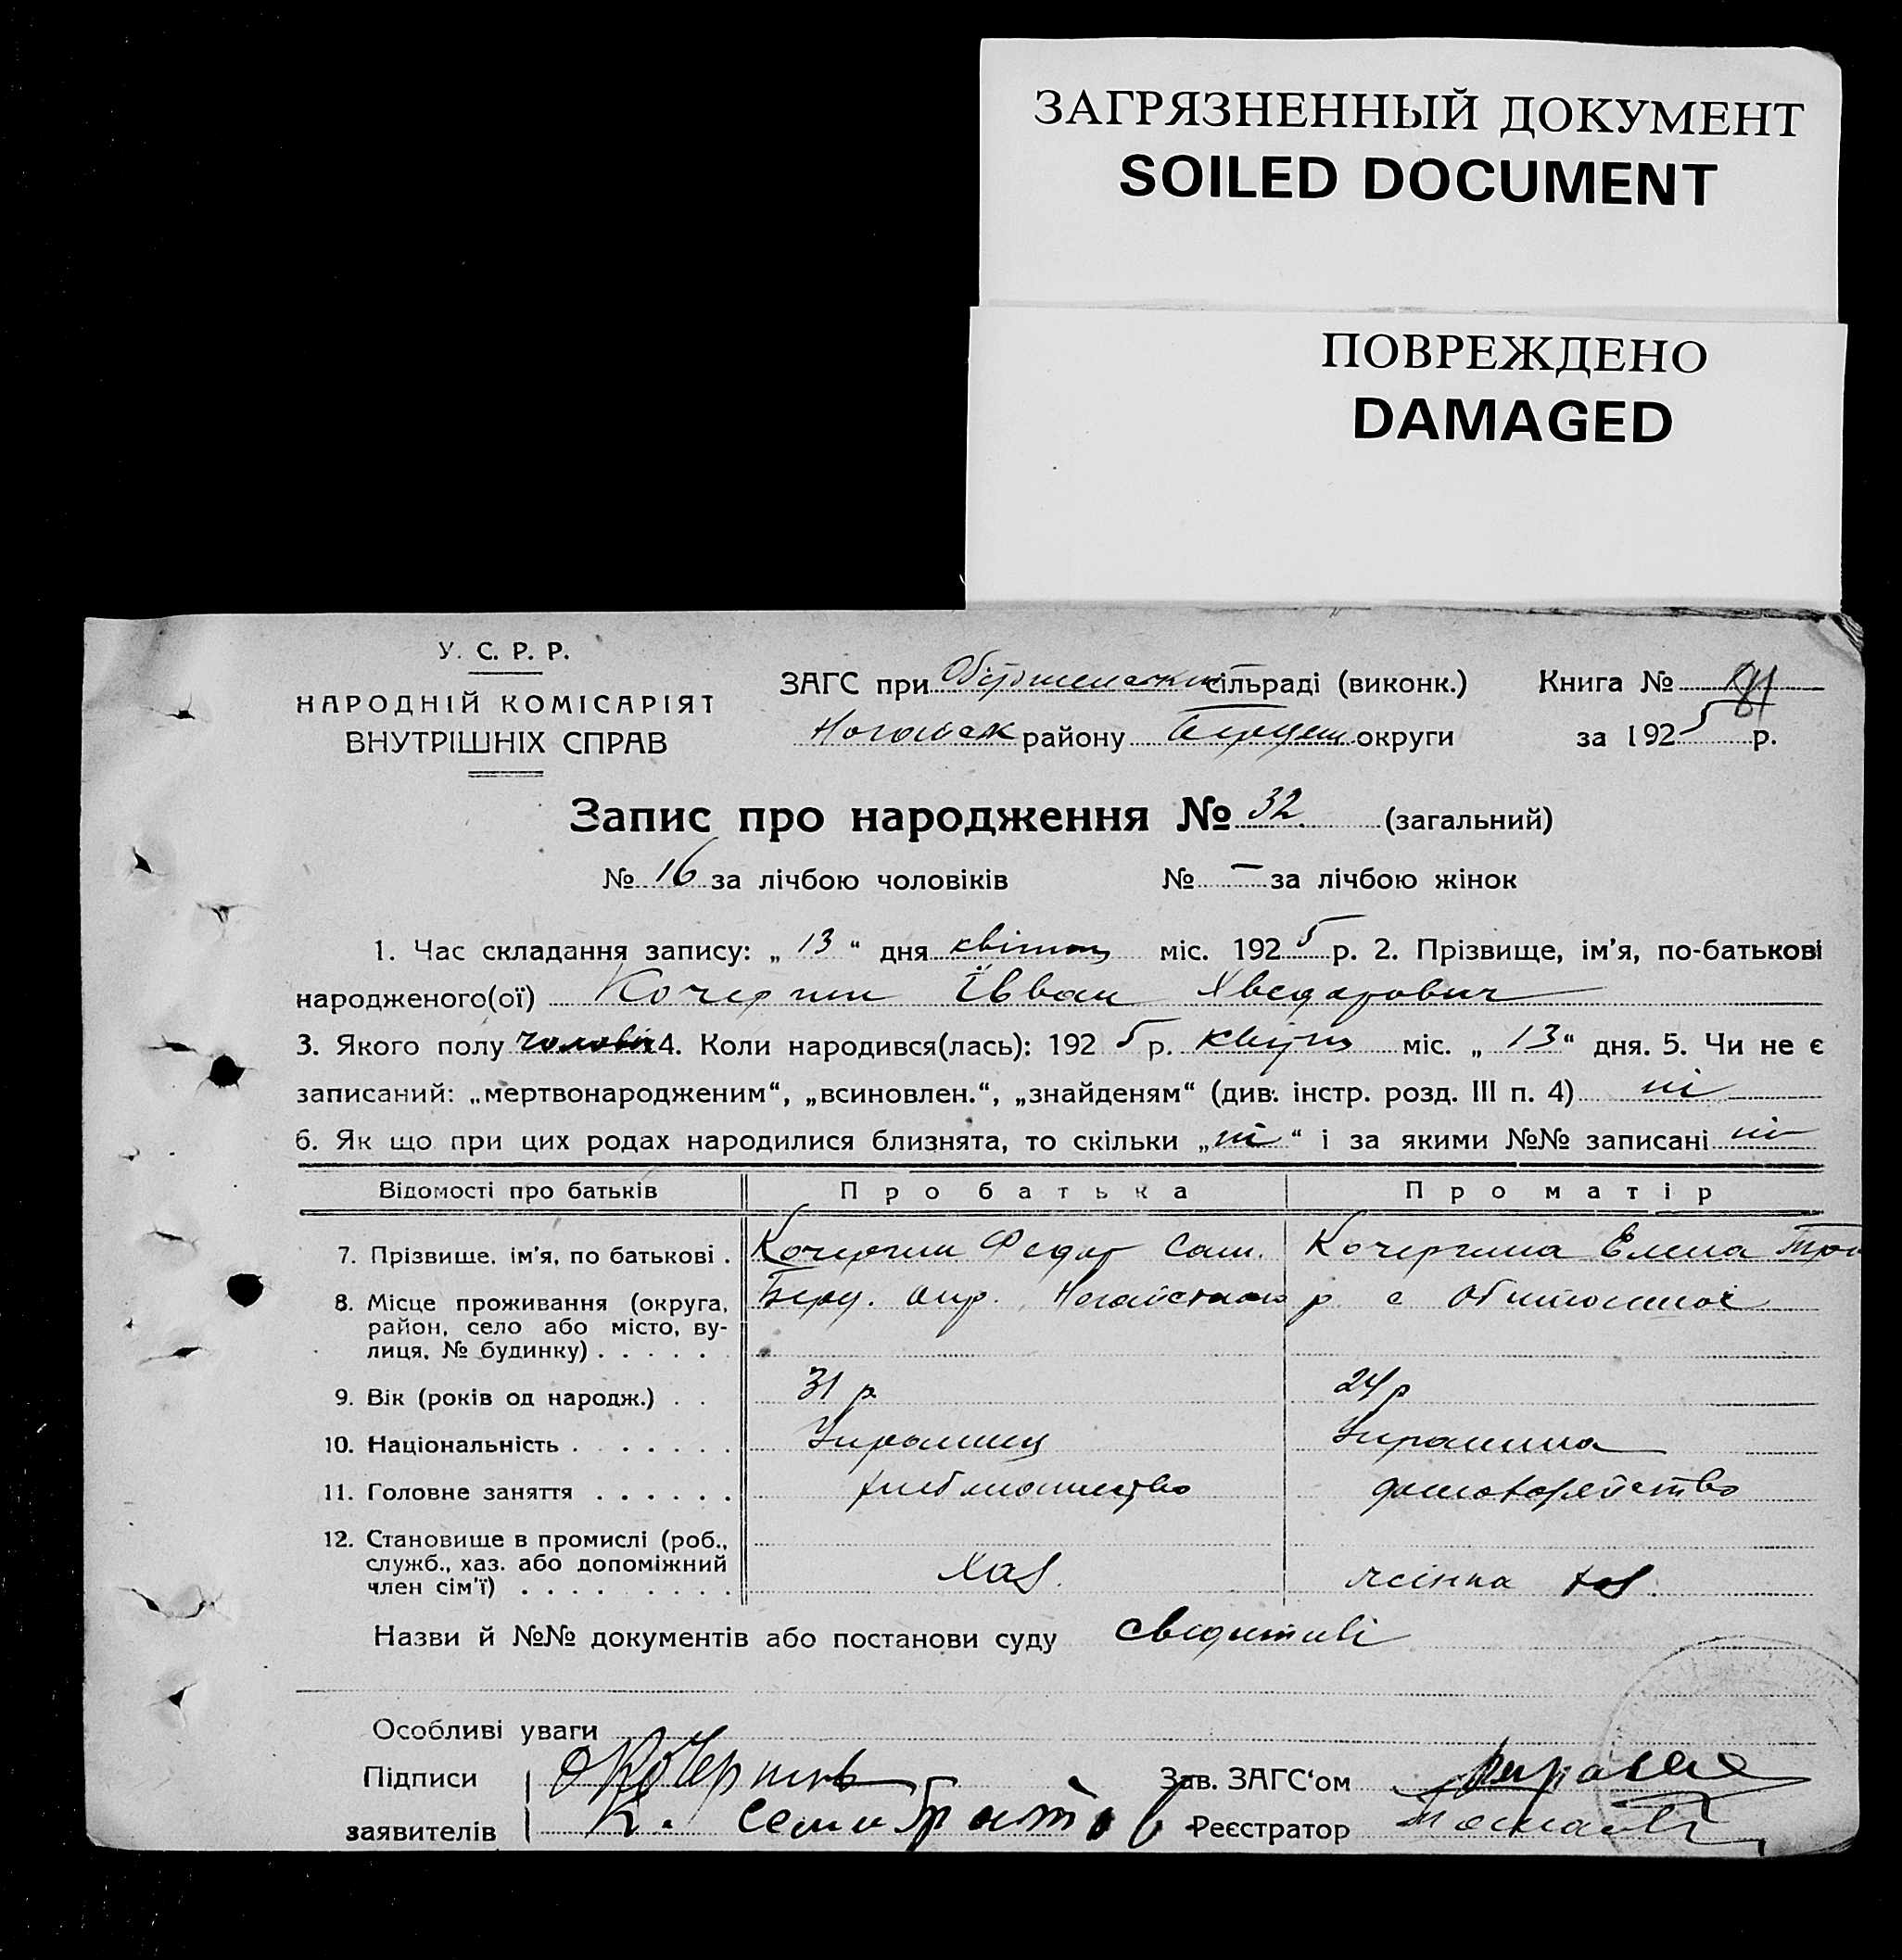 ЗАГРЯЗНЕННЫЙ ДОКУМЕНТ
SOILED DOCUMENT
ПОВРЕЖДЕНО
DAMAGED
У. С. Р. Р.
НАРОДНІЙ КОМІСАРІЯТ
ВНУТРІШНІХ СПРАВ
ЗАГС при сільраді (виконк.) Книга №
району округи за 1925 р.
Запис про народження № 32 (загальний)
№ 16 за лічбою чоловіків № — за лічбою жінок
1. Час складання запису: „ 13 “ дня квітня міс. 1925 р. 2. Прізвище, ім'я, по-батькові
народженого(ої) Кочергин Івван Хведорович
3. Якого полу чоловіч 4. Коли народився(лась): 1925 р. квітня міс. „ 13 “ дня. 5. Чи не є
записаний: „мертвонародженим“, „всиновлен.“, „знайденям“ (див. інстр. розд. III п. 4) ні
6. Як що при цих родах народилися близнята, то скільки „ ні “ і за якими №№ записані ні
Відомості про батьків Про батька Про матір
7. Прізвище, ім'я, по батькові . Кочергин Федор Сам. Кочергина Елена
8. Місце проживання (округа, Берд. окр. Ногайського р с Обиточної
район, село або місто, ву-
лиця, № будинку) . . . . .
9. Вік (років од народж.) . . 31 р 24 р
10. Національність . . . . . . . Украинец Украинка
11. Головне заняття . . . . . . хлебопашество домохозяйство
12. Становище в промислі (роб.,
служб., хаз. або допоміжний хаз. жінка хаз.
член сім'ї) . . . . . . . . .
Назви й №№ документів або постанови суду
Особливі уваги
Підписи Зав. ЗАГС'ом
заявителів К. Семибратов Реєстратор